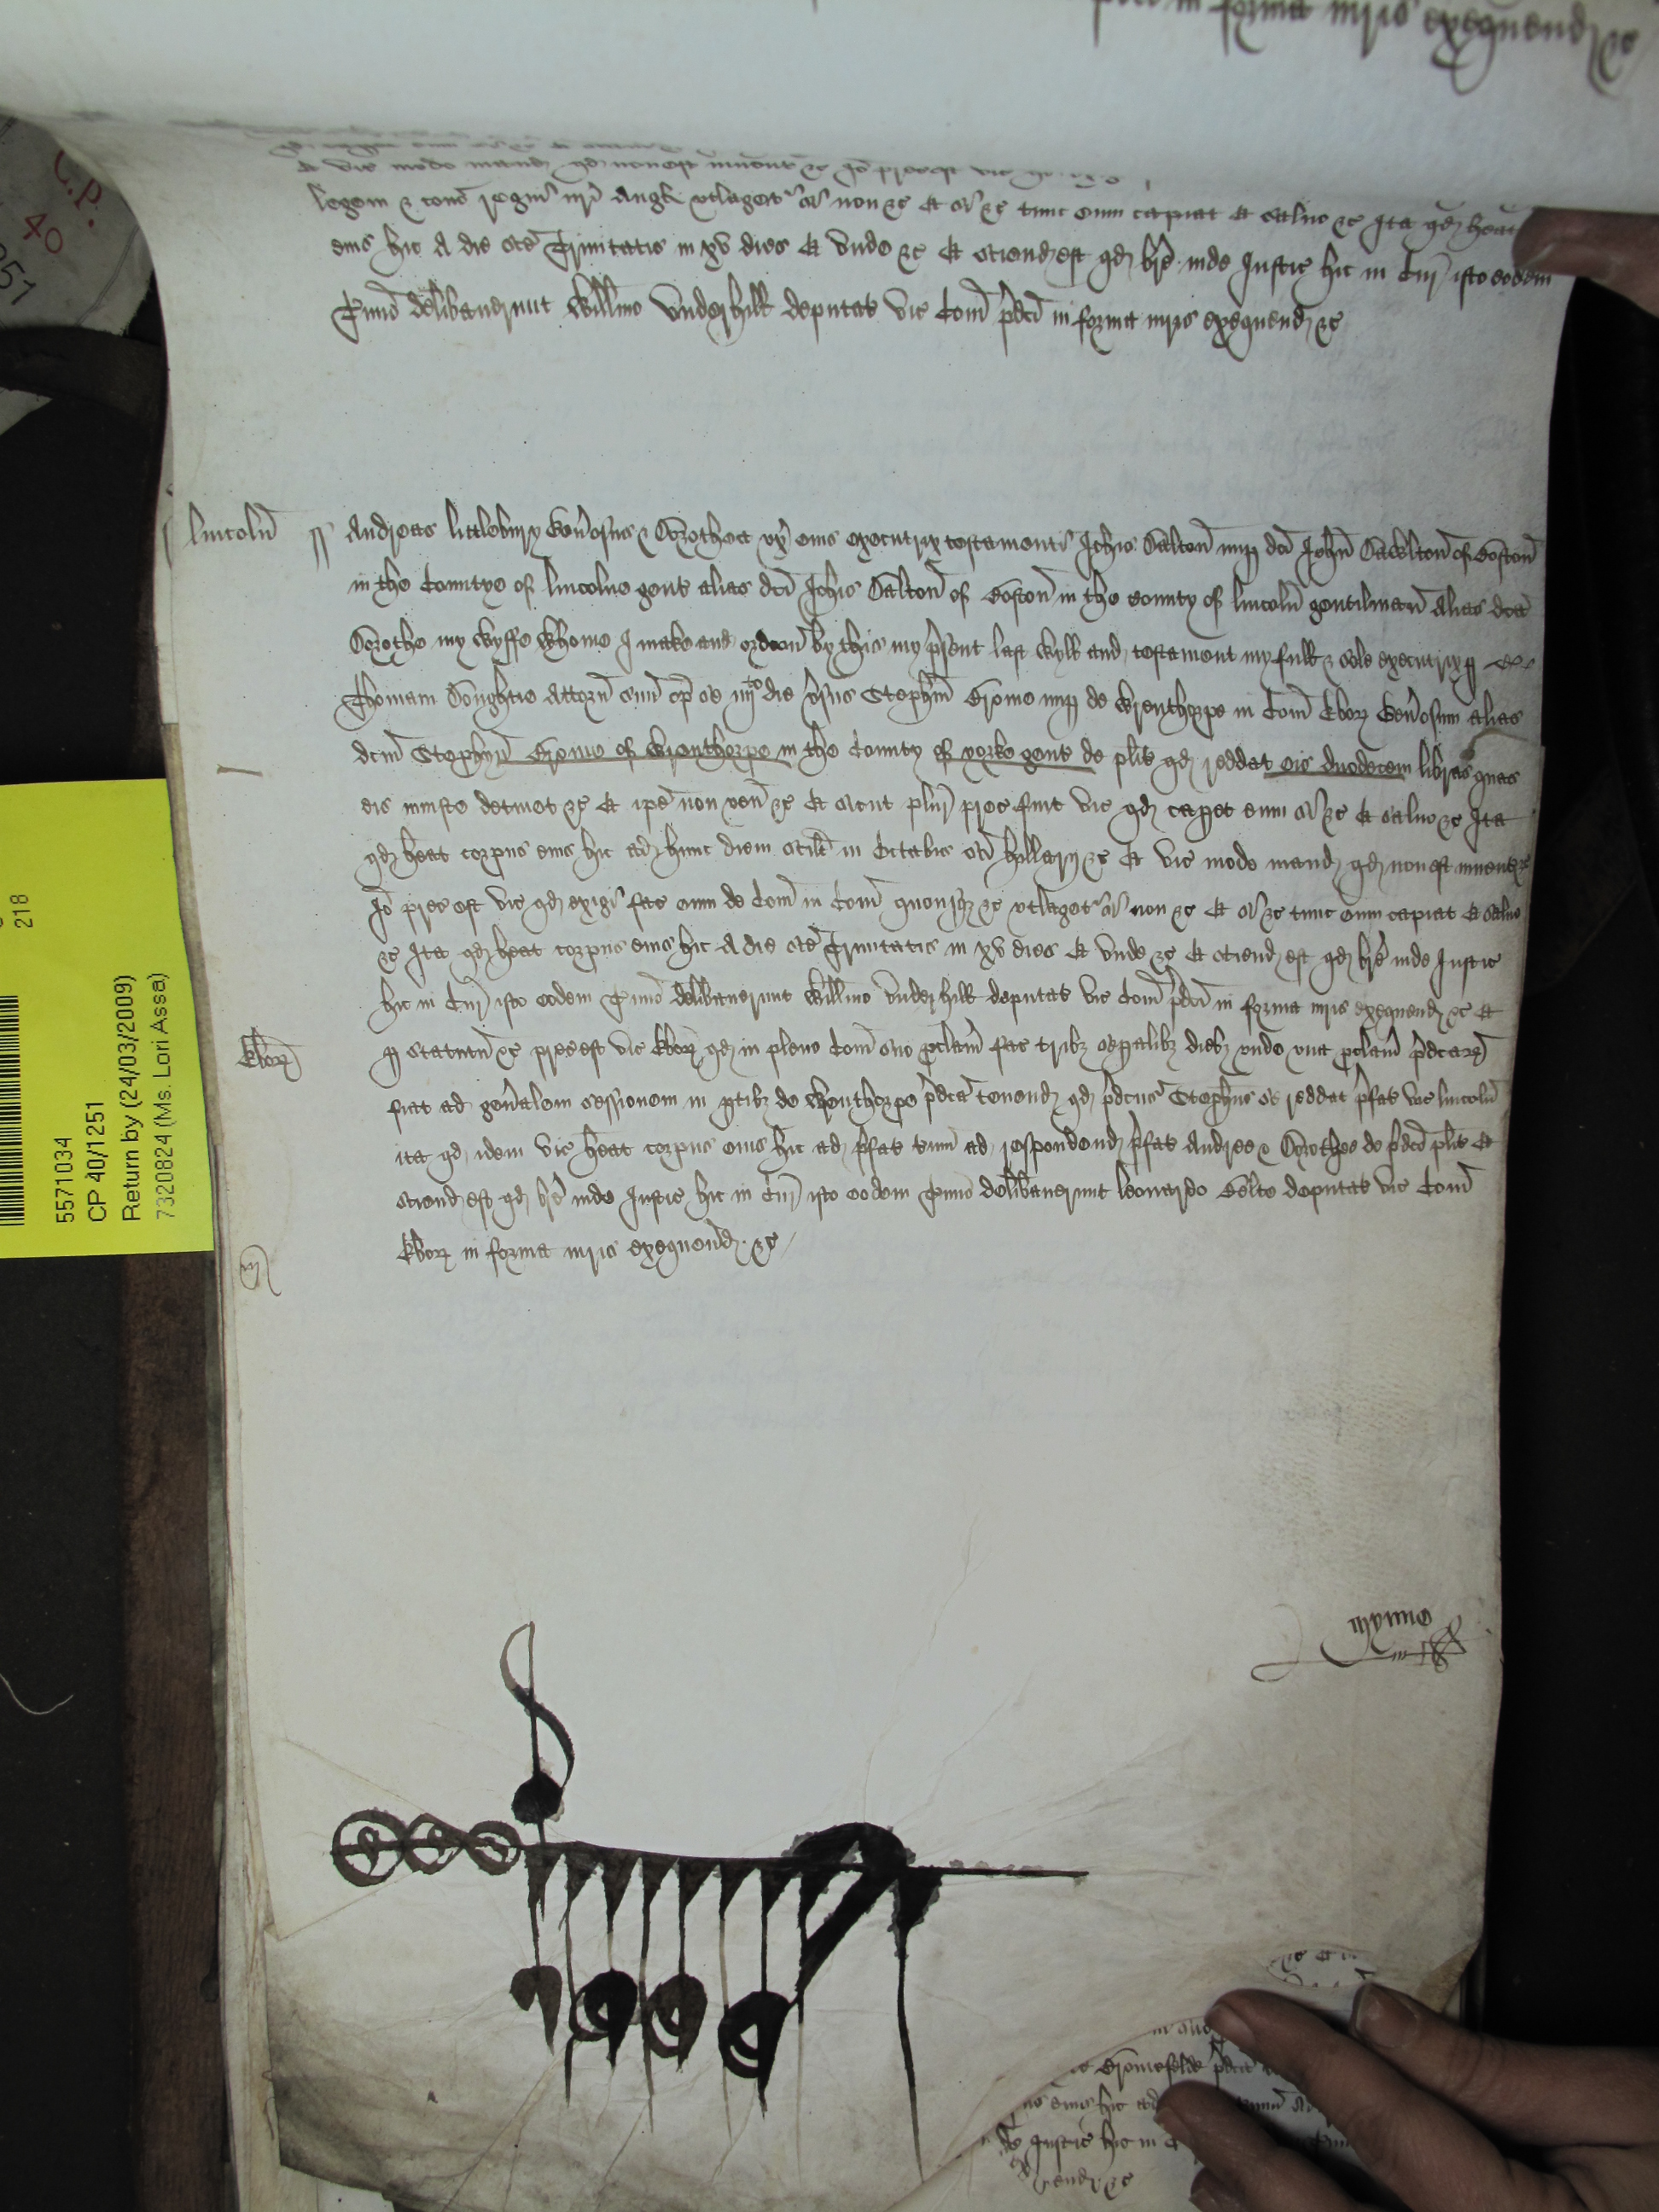 in forma iuris exequend &c
C.P.
40
Et vic modo mand qd non est invent &c Io prec est vic
legem & cons regni nri Angl utlaget si non &c Et si &c tunc eum capiat Et salvo &c Ita qd heat
eius hic A die sce Trinitatis in xv dies Et unde &c Et sciend est qd bre inde Justic hic in Cur isto eodem
Termino delibaverunt Willmo Underhill deputat vic Com pdci in forma iuris exequend &c
Lincoln ss Andreas Littlebury Generosus & Dorothea ux eius executrix testamenti Johis Dalton nup dci John Dawlton of Boston
in the Countye of Lincolne gent alias dci Johis Dalton of Boston in the county of Lincoln gentilman Alias dca
Dorothe my wyffe whome I make and ordeyn by this my psent last wyll and testament my full & sole executrix p
Thomam Doughtie Attorn suum op se iiij to die vsus Stephm Grome nup de Wrenthorpe in Com Ebor Generosum alias
dcm Stephyn Grome of Wrenthorpe in the County of yorke gent de plito qd reddat eis duodecem libras quas
eis iniuste detinet &c Et ipe non ven &c Et sicut plur prec fuit vic qd capet eum si &c Et salvo &c Ita
qd heat corpus eius hic ad hunc diem scilt in Octabis sci Hillarij &c Et vic modo mand qd non est invent &c
Io prec est vic qd exigi fac eum de Com in Com quousqz &c utlaget si non &c Et si &c tunc eum capiat Et salvo
&c Ita qd heat corpus eius hic A die sce Trinitatis in xv dies Et unde &c Et sciend est qd bre inde Justic
hic in Cur isto eodem Termino delibaverunt Willmo Underhill deputat vic Com pdci in forma iuris exequend &c Et
Ebor p statutu &c prec est vic Ebor qd in pleno Com suo pclam fac tribz sepalibz diebz unde una pclam pdcarz
fiat ad generalem sessionem in ptibz de Wrenthorpe pdca tenend qd pdcus Stephus se reddat pfat vic Lincoln
ita qd idem vic heat corpus eius hic ad pfat tmin ad respondend pfat Andree & Dorothee de pdco plito Et
sciend est qd bre inde Justic hic in Cur isto eodem Termino delibaverunt Leonardo Belte deputat vic Com
Ebor in forma iuris exequend &c
Mynne
218
5571034
CP 40/1251
Return by (24/03/2009)
7320824 (Ms. Lori Assa)